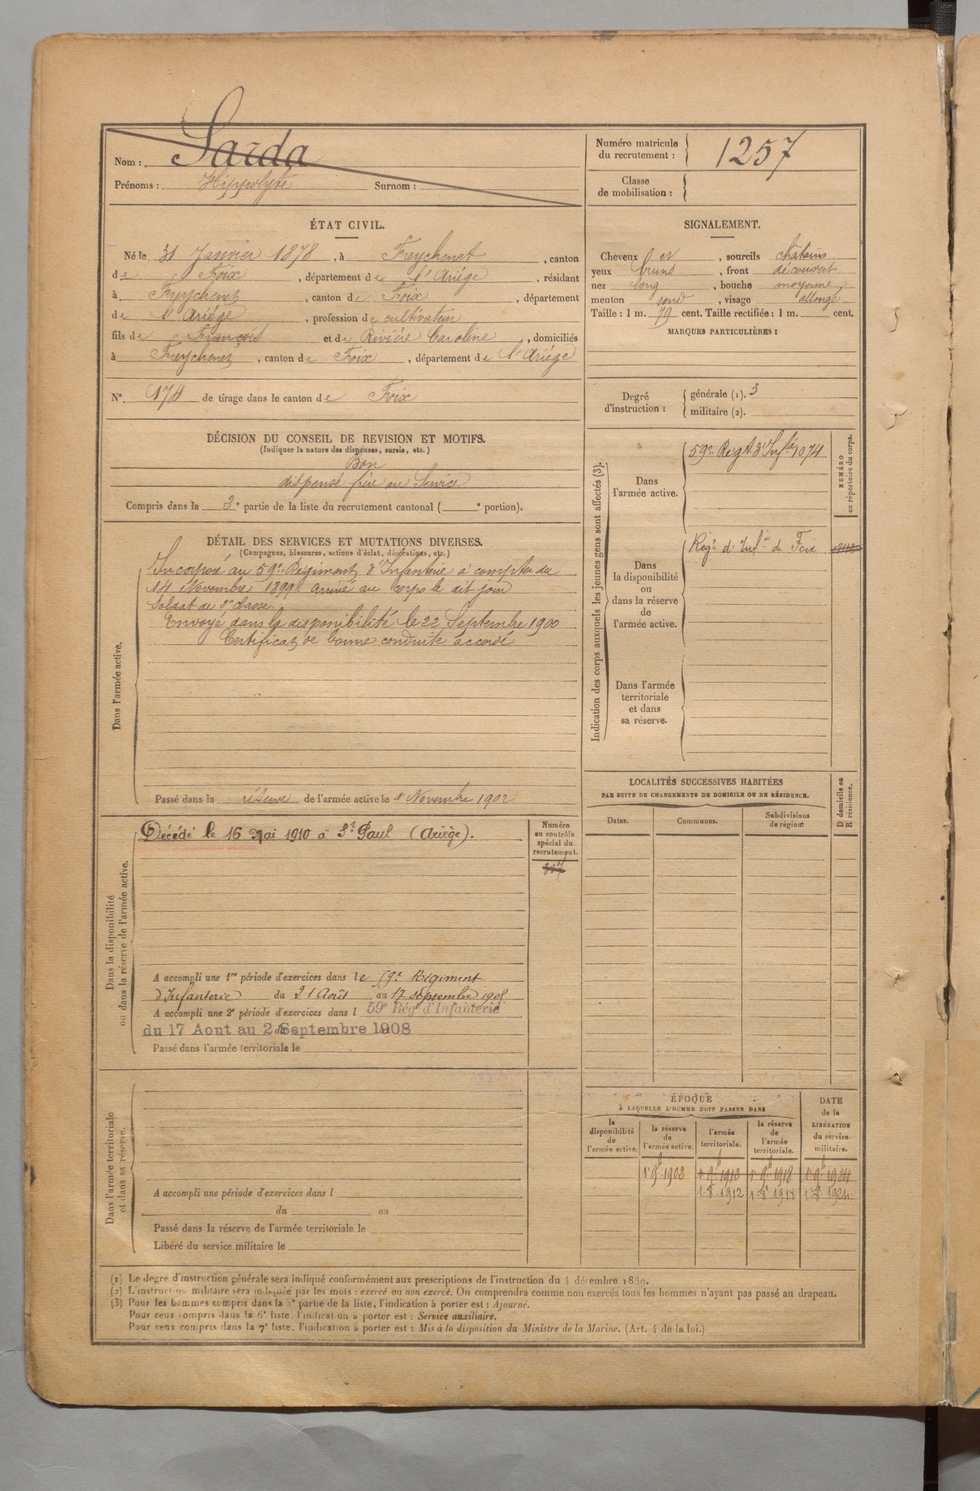 Nom : Sarda
Prénoms : Hippolyte Surnom :
Numéro matricule du recrutement : 1257
Classe de mobilisation :
ÉTAT CIVIL.
Né le 31 Janvier 1878, à Freychenet, canton
de Foix, département de l'Ariége, résidant
à Freychenet, canton de Foix, département
de l'Ariége, profession de cultivateur
fils de François et de Rivière Caroline, domiciliés
à Freychenet, canton de Foix, département de l'Ariége
N° 174 de tirage dans le canton de Foix
SIGNALEMENT.
Cheveux et, sourcils châtains
yeux bruns, front découvert
nez long, bouche moyenne,
menton rond, visage allongé
Taille : 1 m. 79 cent. Taille rectifiée : 1 m. cent.
MARQUES PARTICULIÈRES :
Degré d'instruction : générale (1). 3
militaire (2).
DÉCISION DU CONSEIL DE REVISION ET MOTIFS.
(Indiquer la nature des dispenses, sursis, etc.)
Bon
dispensé frère au Service
Compris dans la 3e partie de la liste du recrutement cantonal ( e portion).
DÉTAIL DES SERVICES ET MUTATIONS DIVERSES.
(Campagnes, blessures, actions d'éclat, décorations, etc.)
Dans l'armée active.
Incorporé au 59e Régiment d'Infanterie à compter du
14 Novembre 1899. Arrivé au corps le dit jour
Soldat de 2e classe.
Envoyé dans la disponibilité le 22 Septembre 1900
Certificat de bonne conduite accordé
Passé dans la réserve de l'armée active le 1er Novembre 1902
Indication des corps auxquels les jeunes gens sont affectés (3).
NUMÉRO au répertoire du corps.
Dans l'armée active. 59e Regt d'Infie 1074
Dans la disponibilité ou dans la réserve de l'armée active. Régt d'Infie de Foix
Dans l'armée territoriale et dans sa réserve.
LOCALITÉS SUCCESSIVES HABITÉES
PAR SUITE DE CHANGEMENTS DE DOMICILE OU DE RÉSIDENCE.
Dates. Communes. Subdivisions de région. D domicile ou R résidence.
Dans la disponibilité ou dans la réserve de l'armée active.
Décédé le 16 Mai 1910 à St Paul (Ariège).
Numéro au contrôle spécial du recrutement.
A accompli une 1re période d'exercices dans le 59e Régiment
d'Infanterie du 21 Août au 17 septembre 1905
A accompli une 2e période d'exercices dans l 59e Rég' d'Infanterie
du 17 Aout au 2 Septembre 1908
Passé dans l'armée territoriale le
Dans l'armée territoriale et dans sa réserve.
A accompli une période d'exercices dans l
du au
Passé dans la réserve de l'armée territoriale le
Libéré du service militaire le
ÉPOQUE
À LAQUELLE L'HOMME DOIT PASSER DANS
DATE de la LIBÉRATION du service militaire.
la disponibilité de l'armée active. la réserve de l'armée active. l'armée territoriale. la réserve de l'armée territoriale.
1 9b 1902 1 9b 1912 1 9b 1918 1 9b 1924
1 8 1912 1 8 1918 1 8 1924
(1) Le degré d'instruction générale sera indiqué conformément aux prescriptions de l'instruction du 4 décembre 1889.
(2) L'instruction militaire sera indiquée par les mots : exercé ou non exercé. On comprendra comme non exercés tous les hommes n'ayant pas passé au drapeau.
(3) Pour les hommes compris dans la 5e partie de la liste, l'indication à porter est : Ajourné.
Pour ceux compris dans la 6e liste, l'indication à porter est : Service auxiliaire.
Pour ceux compris dans la 7e liste, l'indication à porter est : Mis à la disposition du Ministre de la Marine. (Art. 4 de la loi.)